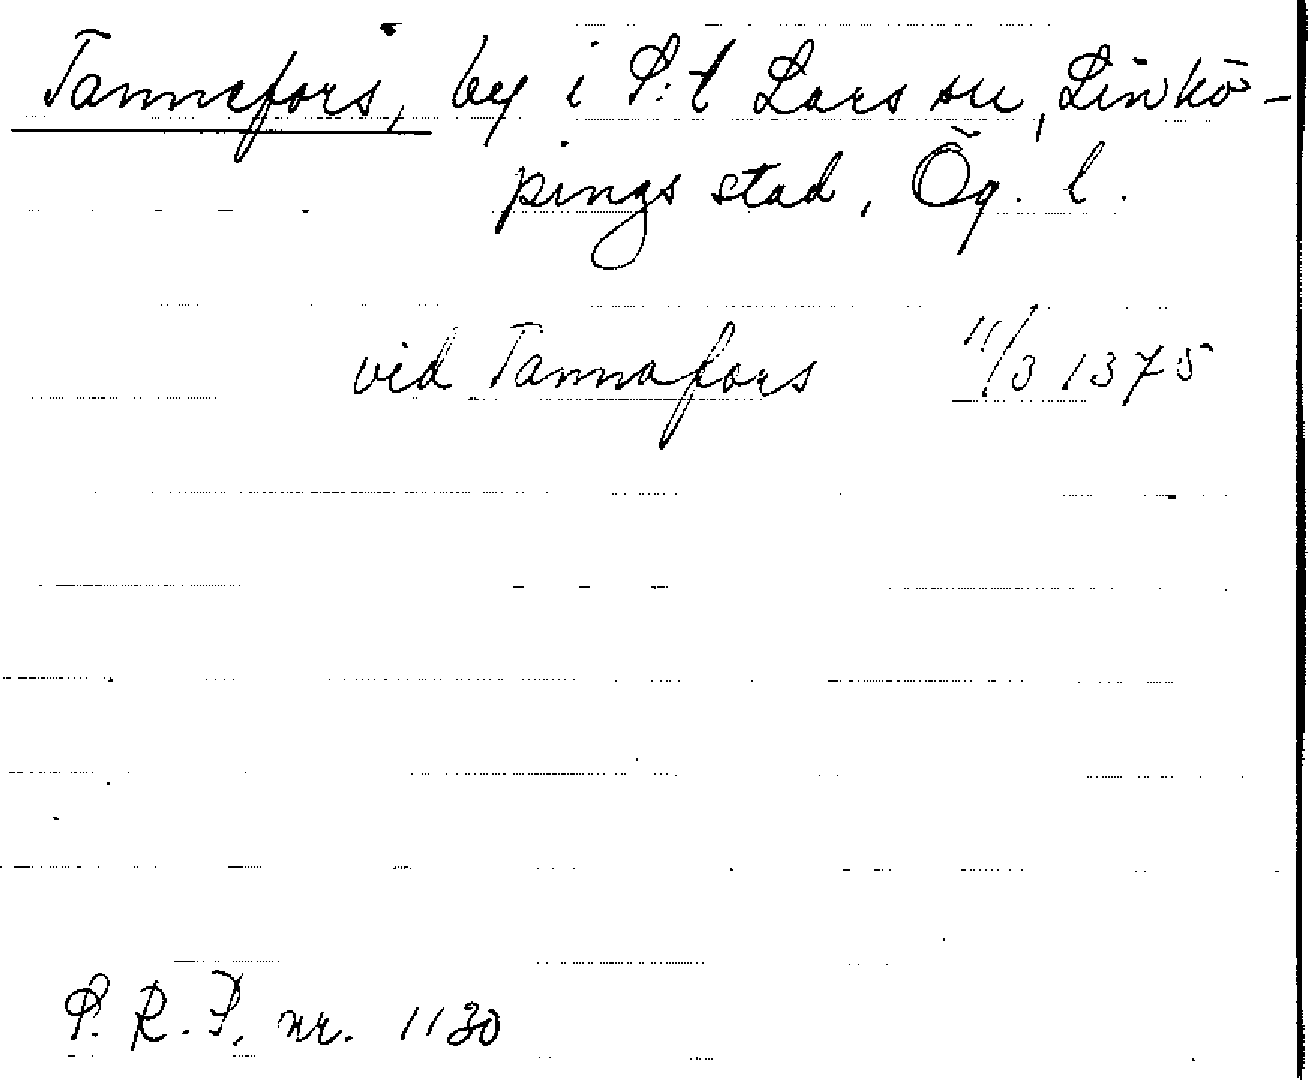 Tannefors, by i S:t Lars sn, Linkö-
pings stad, Ög. l.
vid Tannafors 11/3 1375
S. R. P. nr. 1130